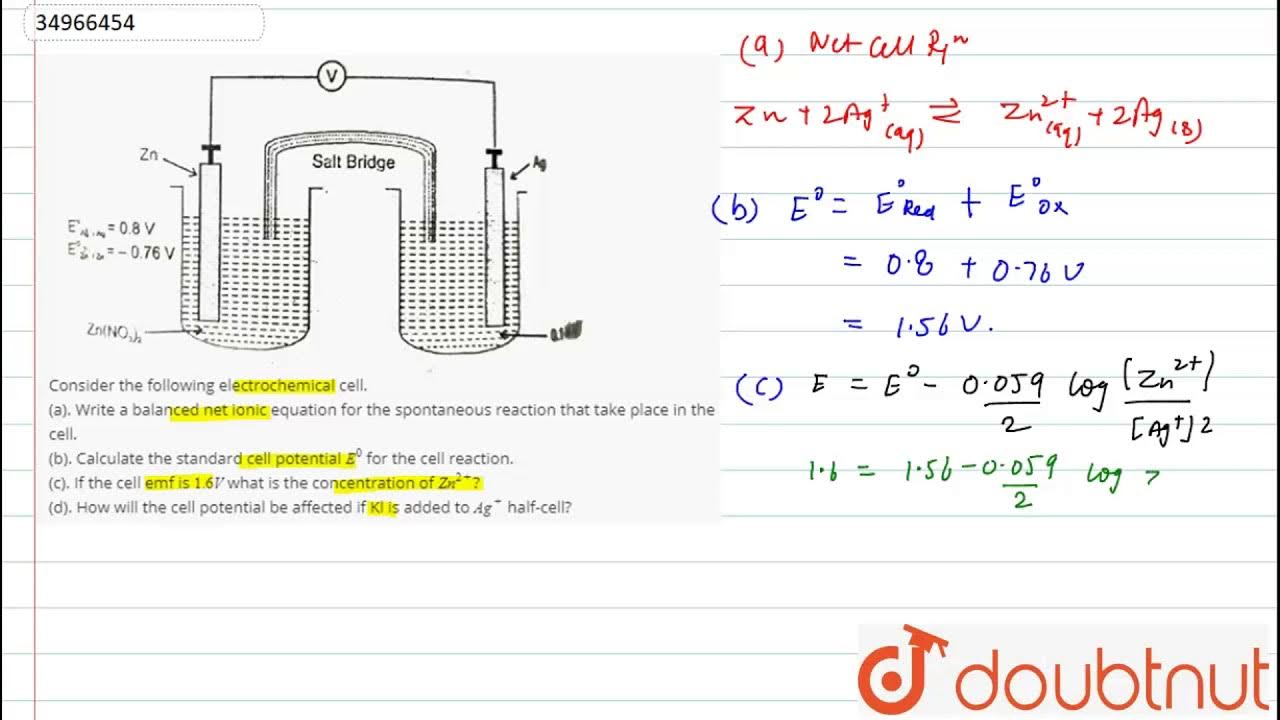 34966454
V
Zn
Salt Bridge
Ag
= 0.8 V
= – 0.76 V
Zn(NO₃)₂
Consider the following electrochemical cell.
(a). Write a balanced net ionic equation for the spontaneous reaction that take place in the
cell.
(b). Calculate the standard cell potential E⁰ for the cell reaction.
(c). If the cell emf is 1.6V what is the concentration of Zn²⁺?
(d). How will the cell potential be affected if KI is added to Ag⁺ half-cell?
(a) Net Cell Rxⁿ
Zn + 2Ag⁺(aq) ⇌ Zn²⁺(aq) + 2Ag(s)
(b) E⁰ = E⁰Red + E⁰ox
= 0.8 + 0.76 V
= 1.56 V.
(c) E = E⁰ – 0.059/2 log [Zn²⁺]/[Ag⁺]2
1.6 = 1.56 – 0.059/2 log
doubtnut